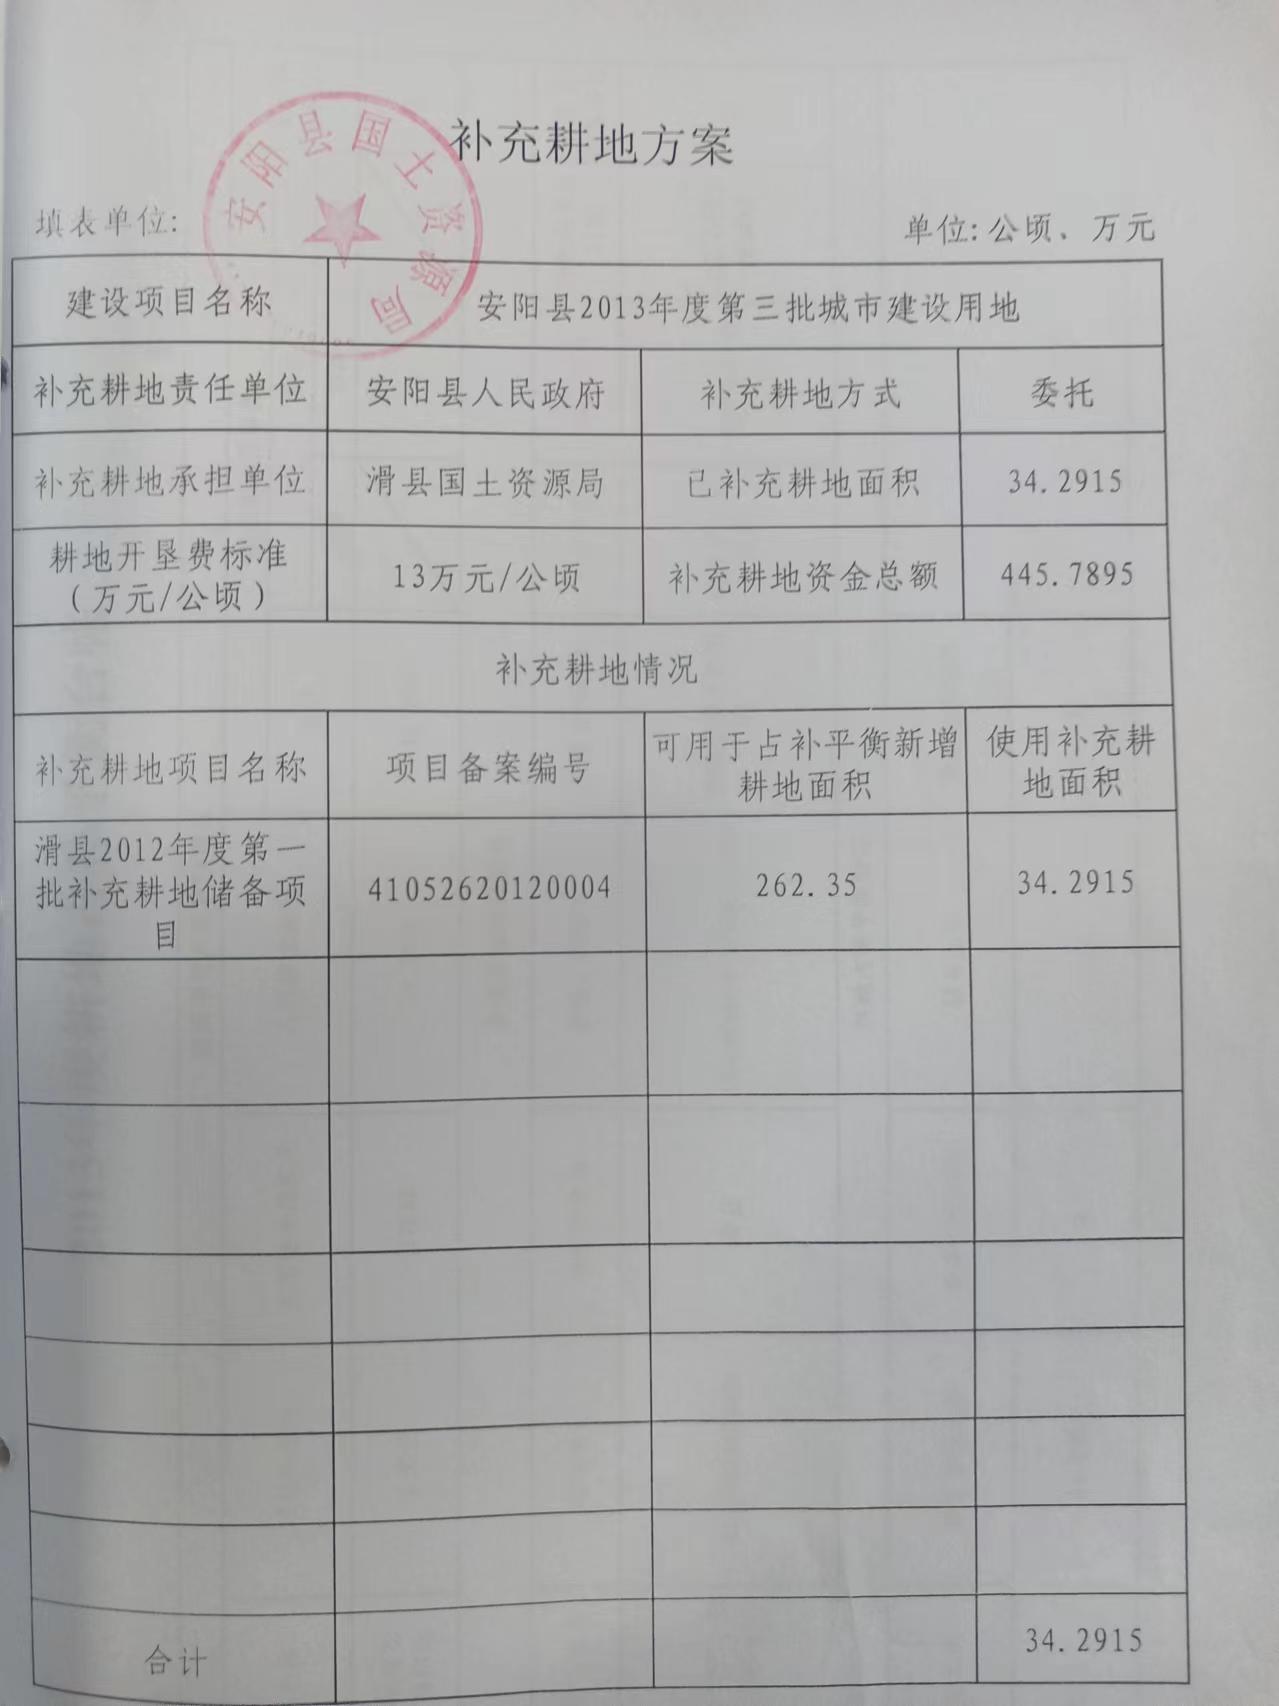 补充耕地方案
安阳县国土资源局
填表单位:
单位:公顷、万元
建设项目名称
安阳县2013年度第三批城市建设用地
补充耕地责任单位
安阳县人民政府
补充耕地方式
委托
补充耕地承担单位
滑县国土资源局
已补充耕地面积
34.2915
耕地开垦费标准
(万元/公顷)
13万元/公顷
补充耕地资金总额
445.7895
补充耕地情况
补充耕地项目名称
项目备案编号
可用于占补平衡新增
耕地面积
使用补充耕
地面积
滑县2012年度第一
批补充耕地储备项
目
41052620120004
262.35
34.2915
合计
34.2915